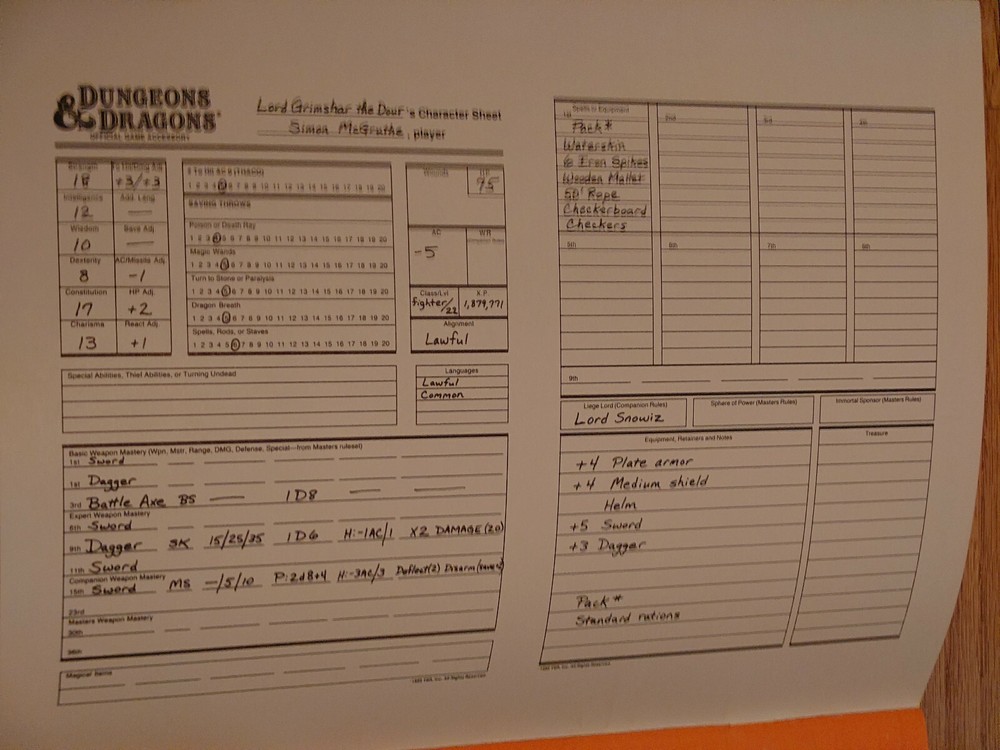 DUNGEONS
& DRAGONS®
OFFICIAL GAME ACCESSORY
Lord Grimshar the Dour's Character Sheet
Simon McGruthe, player
Strength
18 +3/+3
Intelligence Add. Lang.
12 —
Wisdom Save Adj.
10 —
Dexterity AC/Missile Adj.
8 -1
Constitution HP Adj.
17 +2
Charisma React Adj.
13 +1
1 2 3 4 5 6 7 8 9 10 11 12 13 14 15 16 17 18 19 20
SAVING THROWS
Poison or Death Ray
1 2 3 4 5 6 7 8 9 10 11 12 13 14 15 16 17 18 19 20
Magic Wands
1 2 3 4 5 6 7 8 9 10 11 12 13 14 15 16 17 18 19 20
Turn to Stone or Paralysis
1 2 3 4 5 6 7 8 9 10 11 12 13 14 15 16 17 18 19 20
Dragon Breath
1 2 3 4 5 6 7 8 9 10 11 12 13 14 15 16 17 18 19 20
Spells, Rods, or Staves
1 2 3 4 5 6 7 8 9 10 11 12 13 14 15 16 17 18 19 20
Wounds HP
95
AC WR
-5
Class/Lvl X.P.
fighter/22 1,879,771
Alignment
Lawful
Special Abilities, Thief Abilities, or Turning Undead
Languages
Lawful
Common
Basic Weapon Mastery (Wpn, Mstr, Range, DMG, Defense, Special—from Masters ruleset)
1st Sword
1st Dagger
3rd Battle Axe BS — 1D8
Expert Weapon Mastery
6th Sword
9th Dagger SK 15/25/35 1D6 H:-1AC/1 X2 DAMAGE (20)
11th Sword
Companion Weapon Mastery
15th Sword MS —/5/10 P:2d8+4 H:-3AC/3 Deflect(2) Disarm
23rd
Masters Weapon Mastery
30th
36th
Magical Items
All Rights Reserved.
Spells or Equipment
1st 2nd 3rd 4th
Pack*
Waterskin
6 Iron Spikes
Wooden Mallet
50' Rope
Checkerboard
Checkers
5th 6th 7th 8th
9th
Liege Lord (Companion Rules)
Lord Snowiz
Sphere of Power (Masters Rules)
Immortal Sponsor (Masters Rules)
Equipment, Retainers and Notes
+4 Plate armor
+4 Medium shield
Helm
+5 Sword
+3 Dagger
Pack*
Standard rations
Treasure
All Rights Reserved.